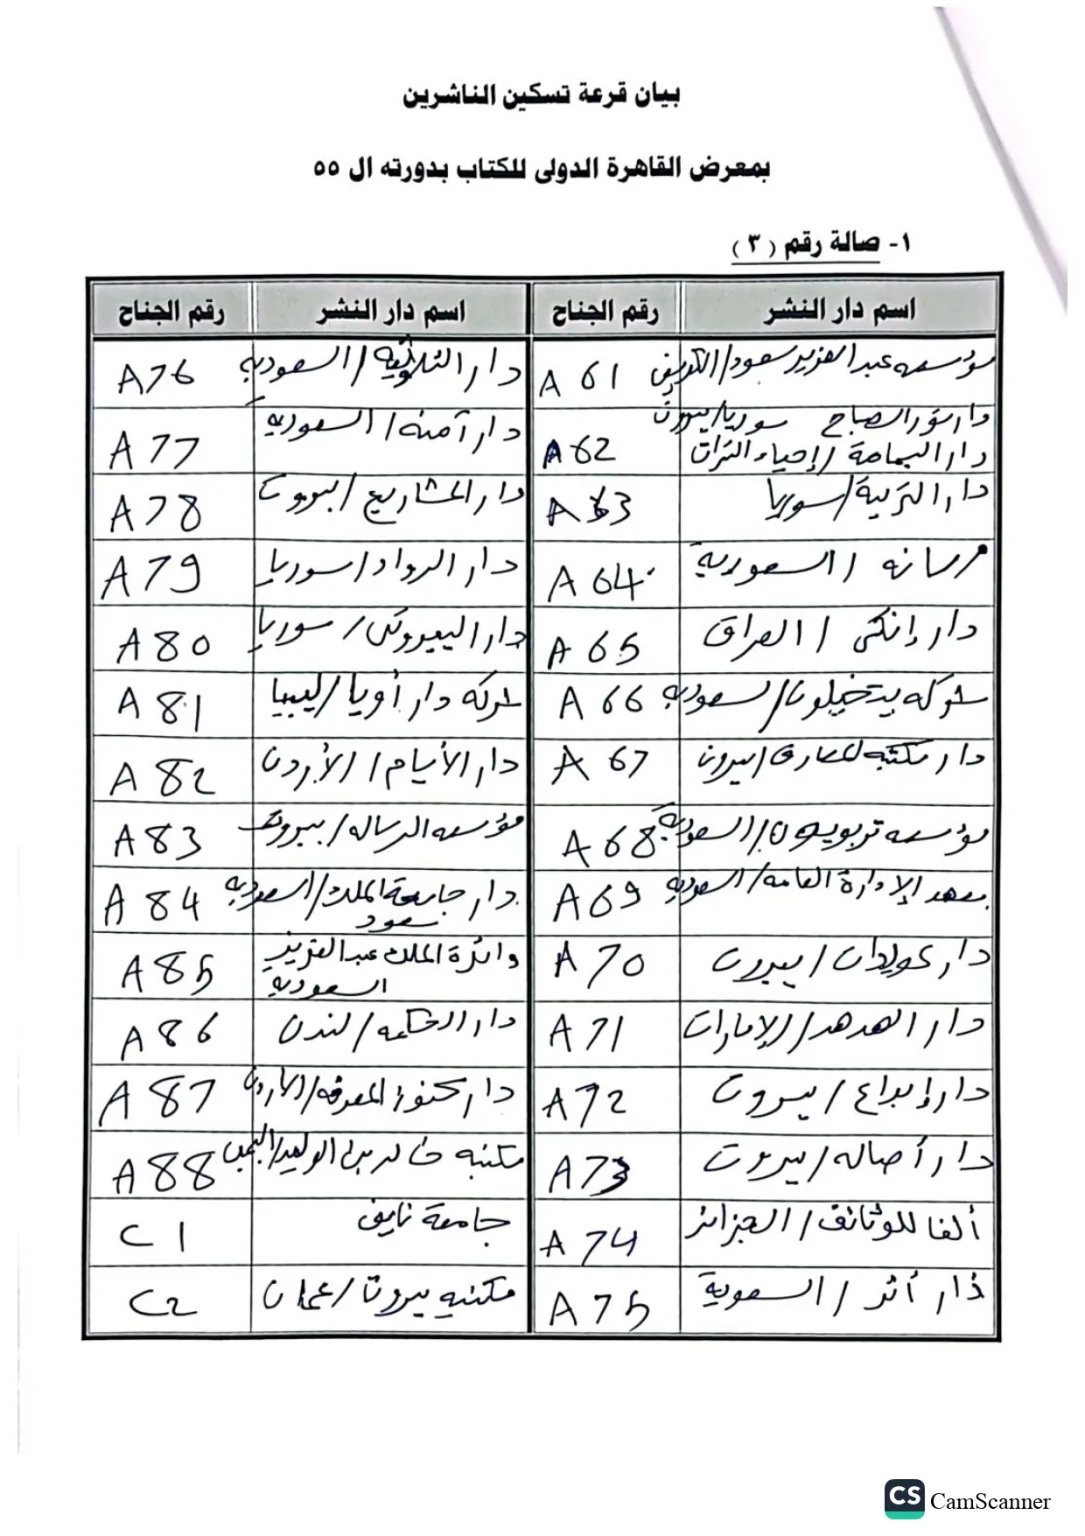 بيان قرعة تسكين الناشرين
بمعرض القاهرة الدولى للكتاب بدورته ال ٥٥
١- صالة رقم (٣)
اسم دار النشر رقم الجناح اسم دار النشر رقم الجناح
مؤسسه عبد العزيز سعود/الكويت A 61 دار الثلوثيه/السعوديه A76
دار نور الصباح سوريا/بيروت
دار اليمامة/إحياء التراث A 62 دار آمنه/السعوديه A 77
دار التربية/سوريا A 63 دار المشاريع/بيروت A 78
مرسانه/السعودية A 64 دار الرواد/سوريا A 79
دار إنكى/العراق A 65 دار اليعيروتى/سوريا A 80
شركه ديتخيلون/سعوديه A 66 شركه دار أويا/ليبيا A 81
دار مكتبه المعارف/بيرون A 67 دار الأيام/الأردن A 82
مؤسسه تربويون/السعوديه A 68 مؤسسه الرساله/بيروت A 83
معهد الإدارة العامه/السعوديه A69 دار جامعة الملك/السعوديه
سعود A 84
دار عويدات/بيروت A 70 دائرة الملك عبد العزيز
السعوديه A 85
دار الهدهد/الإمارات A 71 دار الحكمه/لندن A 86
دار إبداع/بيروت A 72 دار كنوز المعرفه/الأردن A 87
دار أصاله/بيروت A73 مكتبه خالد بن الوليد/اليمن A 88
ألفا للوثائق/الجزائر A 74 جامعة نايف C 1
دار أثر/السعودية A 75 مكتبه بيروت/عمان C2
CS CamScanner